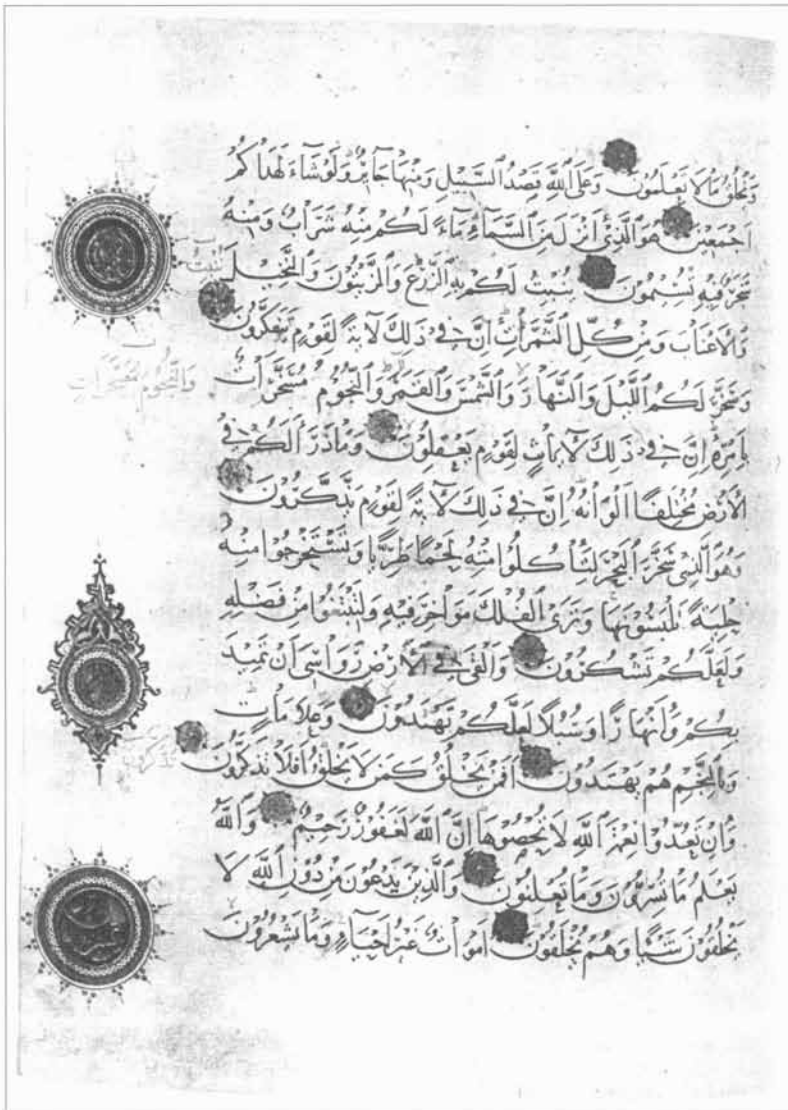 وَيَخْلُقُ مَا لَا تَعْلَمُونَ وَعَلَى اللَّهِ قَصْدُ السَّبِيلِ وَمِنْهَا جَائِرٌ وَلَوْ شَاءَ لَهَدَاكُمْ
أَجْمَعِينَ هُوَ الَّذِي أَنْزَلَ مِنَ السَّمَاءِ مَاءً لَكُمْ مِنْهُ شَرَابٌ وَمِنْهُ
شَجَرٌ فِيهِ تُسِيمُونَ يُنْبِتُ لَكُمْ بِهِ الزَّرْعَ وَالزَّيْتُونَ وَالنَّخِيلَ
وَالْأَعْنَابَ وَمِنْ كُلِّ الثَّمَرَاتِ إِنَّ فِي ذَلِكَ لَآيَةً لِقَوْمٍ يَتَفَكَّرُونَ
وَسَخَّرَ لَكُمُ اللَّيْلَ وَالنَّهَارَ وَالشَّمْسَ وَالْقَمَرَ وَالنُّجُومُ مُسَخَّرَاتٌ
بِأَمْرِهِ إِنَّ فِي ذَلِكَ لَآيَاتٍ لِقَوْمٍ يَعْقِلُونَ وَمَا ذَرَأَ لَكُمْ فِي
الْأَرْضِ مُخْتَلِفًا أَلْوَانُهُ إِنَّ فِي ذَلِكَ لَآيَةً لِقَوْمٍ يَذَّكَّرُونَ
وَهُوَ الَّذِي سَخَّرَ الْبَحْرَ لِتَأْكُلُوا مِنْهُ لَحْمًا طَرِيًّا وَتَسْتَخْرِجُوا مِنْهُ
حِلْيَةً تَلْبَسُونَهَا وَتَرَى الْفُلْكَ مَوَاخِرَ فِيهِ وَلِتَبْتَغُوا مِنْ فَضْلِهِ
وَلَعَلَّكُمْ تَشْكُرُونَ وَأَلْقَى فِي الْأَرْضِ رَوَاسِيَ أَنْ تَمِيدَ
بِكُمْ وَأَنْهَارًا وَسُبُلًا لَعَلَّكُمْ تَهْتَدُونَ وَعَلَامَاتٍ
وَبِالنَّجْمِ هُمْ يَهْتَدُونَ أَفَمَنْ يَخْلُقُ كَمَنْ لَا يَخْلُقُ أَفَلَا تَذَكَّرُونَ
وَإِنْ تَعُدُّوا نِعْمَةَ اللَّهِ لَا تُحْصُوهَا إِنَّ اللَّهَ لَغَفُورٌ رَحِيمٌ وَاللَّهُ
يَعْلَمُ مَا تُسِرُّونَ وَمَا تُعْلِنُونَ وَالَّذِينَ يَدْعُونَ مِنْ دُونِ اللَّهِ لَا
يَخْلُقُونَ شَيْئًا وَهُمْ يُخْلَقُونَ أَمْوَاتٌ غَيْرُ أَحْيَاءٍ وَمَا يَشْعُرُونَ
وَالنُّجُومَ مُسَخَّرَاتٍ